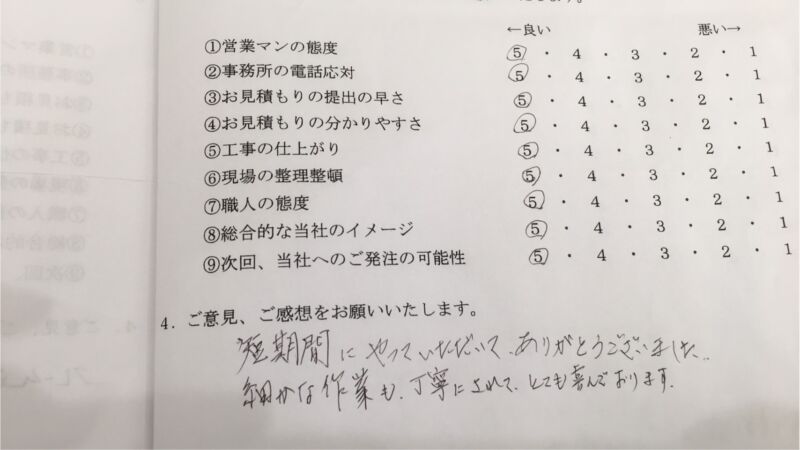 ←良い 悪い→
①営業マンの態度 5 ・ 4 ・ 3 ・ 2 ・ 1
②事務所の電話応対 5 ・ 4 ・ 3 ・ 2 ・ 1
③お見積もりの提出の早さ 5 ・ 4 ・ 3 ・ 2 ・ 1
④お見積もりの分かりやすさ 5 ・ 4 ・ 3 ・ 2 ・ 1
⑤工事の仕上がり 5 ・ 4 ・ 3 ・ 2 ・ 1
⑥現場の整理整頓 5 ・ 4 ・ 3 ・ 2 ・ 1
⑦職人の態度 5 ・ 4 ・ 3 ・ 2 ・ 1
⑧総合的な当社のイメージ 5 ・ 4 ・ 3 ・ 2 ・ 1
⑨次回、当社へのご発注の可能性 5 ・ 4 ・ 3 ・ 2 ・ 1
4．ご意見、ご感想をお願いいたします。
短期間にやっていただいて、ありがとうございました。
細かな作業も、丁寧にされて、とても喜んでおります。